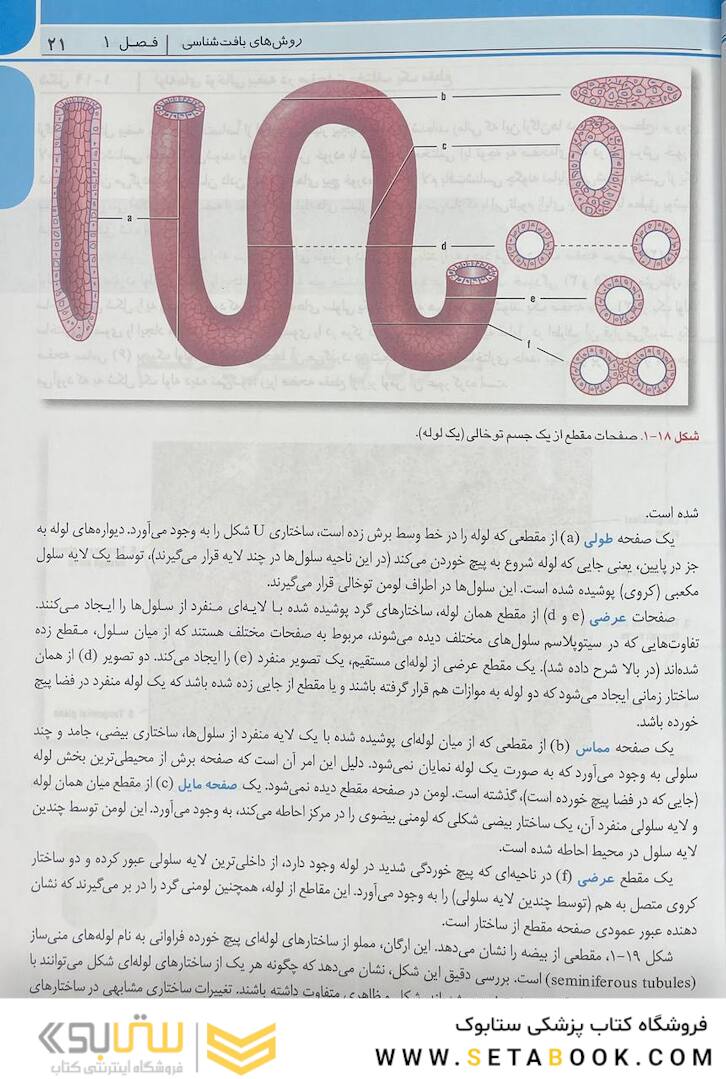 روش‌های بافت‌شناسی | فصل ۱ ۲۱
a
b
c
d
e
f
شکل ۱۸-۱. صفحات مقطع از یک جسم توخالی (یک لوله).
شده است.
یک صفحه طولی (a) از مقطعی که لوله را در خط وسط برش زده است، ساختاری U شکل را به وجود می‌آورد. دیواره‌های لوله به
جز در پایین، یعنی جایی که لوله شروع به پیچ خوردن می‌کند (در این ناحیه سلول‌ها در چند لایه قرار می‌گیرند)، توسط یک لایه سلول
مکعبی (کروی) پوشیده شده است. این سلول‌ها در اطراف لومن توخالی قرار می‌گیرند.
صفحات عرضی (e و d) از مقطع همان لوله، ساختارهای گرد پوشیده شده با لایه‌ای منفرد از سلول‌ها را ایجاد می‌کنند.
تفاوت‌هایی که در سیتوپلاسم سلول‌های مختلف دیده می‌شوند، مربوط به صفحات مختلف هستند که از میان سلول، مقطع زده
شده‌اند (در بالا شرح داده شد). یک مقطع عرضی از لوله‌ای مستقیم، یک تصویر منفرد (e) را ایجاد می‌کند. دو تصویر (d) از همان
ساختار زمانی ایجاد می‌شود که دو لوله به موازات هم قرار گرفته باشند و یا مقطع از جایی زده شده باشد که یک لوله منفرد در فضا پیچ
خورده باشد.
یک صفحه مماس (b) از مقطعی که از میان لوله‌ای پوشیده شده با یک لایه منفرد از سلول‌ها، ساختاری بیضی، جامد و چند
سلولی به وجود می‌آورد که به صورت یک لوله نمایان نمی‌شود. دلیل این امر آن است که صفحه برش از محیطی‌ترین بخش لوله
(جایی که در فضا پیچ خورده است)، گذشته است. لومن در صفحه مقطع دیده نمی‌شود. یک صفحه مایل (c) از مقطع میان همان لوله
و لایه سلولی منفرد آن، یک ساختار بیضی شکلی که لومنی بیضوی را در مرکز احاطه می‌کند، به وجود می‌آورد. این لومن توسط چندین
لایه سلول در محیط احاطه شده است.
یک مقطع عرضی (f) در ناحیه‌ای که پیچ خوردگی شدید در لوله وجود دارد، از داخلی‌ترین لایه سلولی عبور کرده و دو ساختار
کروی متصل به هم (توسط چندین لایه سلولی) را به وجود می‌آورد. این مقاطع از لوله، همچنین لومنی گرد را در بر می‌گیرند که نشان
دهنده عبور عمودی صفحه مقطع از ساختار است.
شکل ۱۹-۱، مقطعی از بیضه را نشان می‌دهد. این ارگان، مملو از ساختارهای لوله‌ای پیچ خورده فراوانی به نام لوله‌های منی‌ساز
(seminiferous tubules) است. بررسی دقیق این شکل، نشان می‌دهد که چگونه هر یک از ساختارهای لوله‌ای شکل می‌توانند با
شکل و ظاهری متفاوت داشته باشند. تغییرات ساختاری مشابهی در ساختارهای
فروشگاه کتاب پزشکی ستابوک
WWW.SETABOOK.COM
ستابوک
فروشگاه اینترنتی کتاب